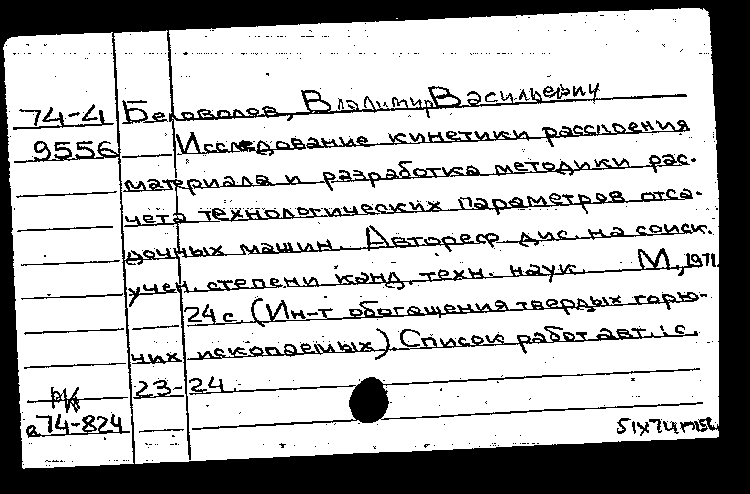 74-4 Беловолов, Владимир Васильевич
9556 Исследование кинетики расслоения
материала и разработка методики рас-
чета технологических параметров отса-
дочных машин. Автореф. дис. на соиск.
учен. степени канд. техн. наук. М., 1971.
24 с. (Ин-т обогащения твердых горю-
чих ископаемых). Список работ авт.: с.
23-24.
РК
а 74-824